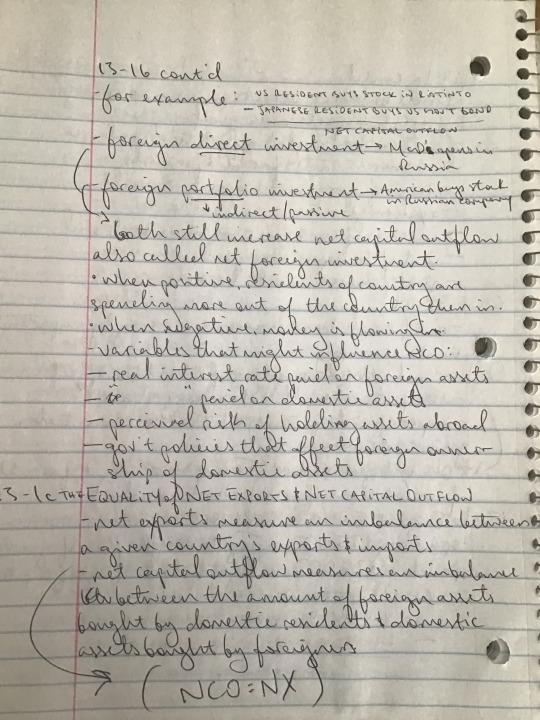 13-1b cont'd
- for example: US RESIDENT BUYS STOCK IN RIOTINTO
- JAPANESE RESIDENT BUYS US GOV'T BOND
NET CAPITAL OUTFLOW
- foreign direct investment → McD's opens in
Russia
- foreign portfolio investment → American buys stock
in Russian company
↓ indirect/passive
both still increase net capital outflow
also called net foreign investment.
• when positive, residents of country are
spending more out of the country than in.
• when negative, money is flowing in.
- variables that might influence NCO:
- real interest rate paid on foreign assets
- " " paid on domestic assets
- perceived risk of holding assets abroad
- gov't policies that affect foreign owner-
ship of domestic assets
3-1c THE EQUALITY of NET EXPORTS & NET CAPITAL OUTFLOW
- net exports measure an imbalance between
a given country's exports & imports
- net capital outflow measures an imbalance
between the amount of foreign assets
bought by domestic residents & domestic
assets bought by foreigners
(NCO = NX)